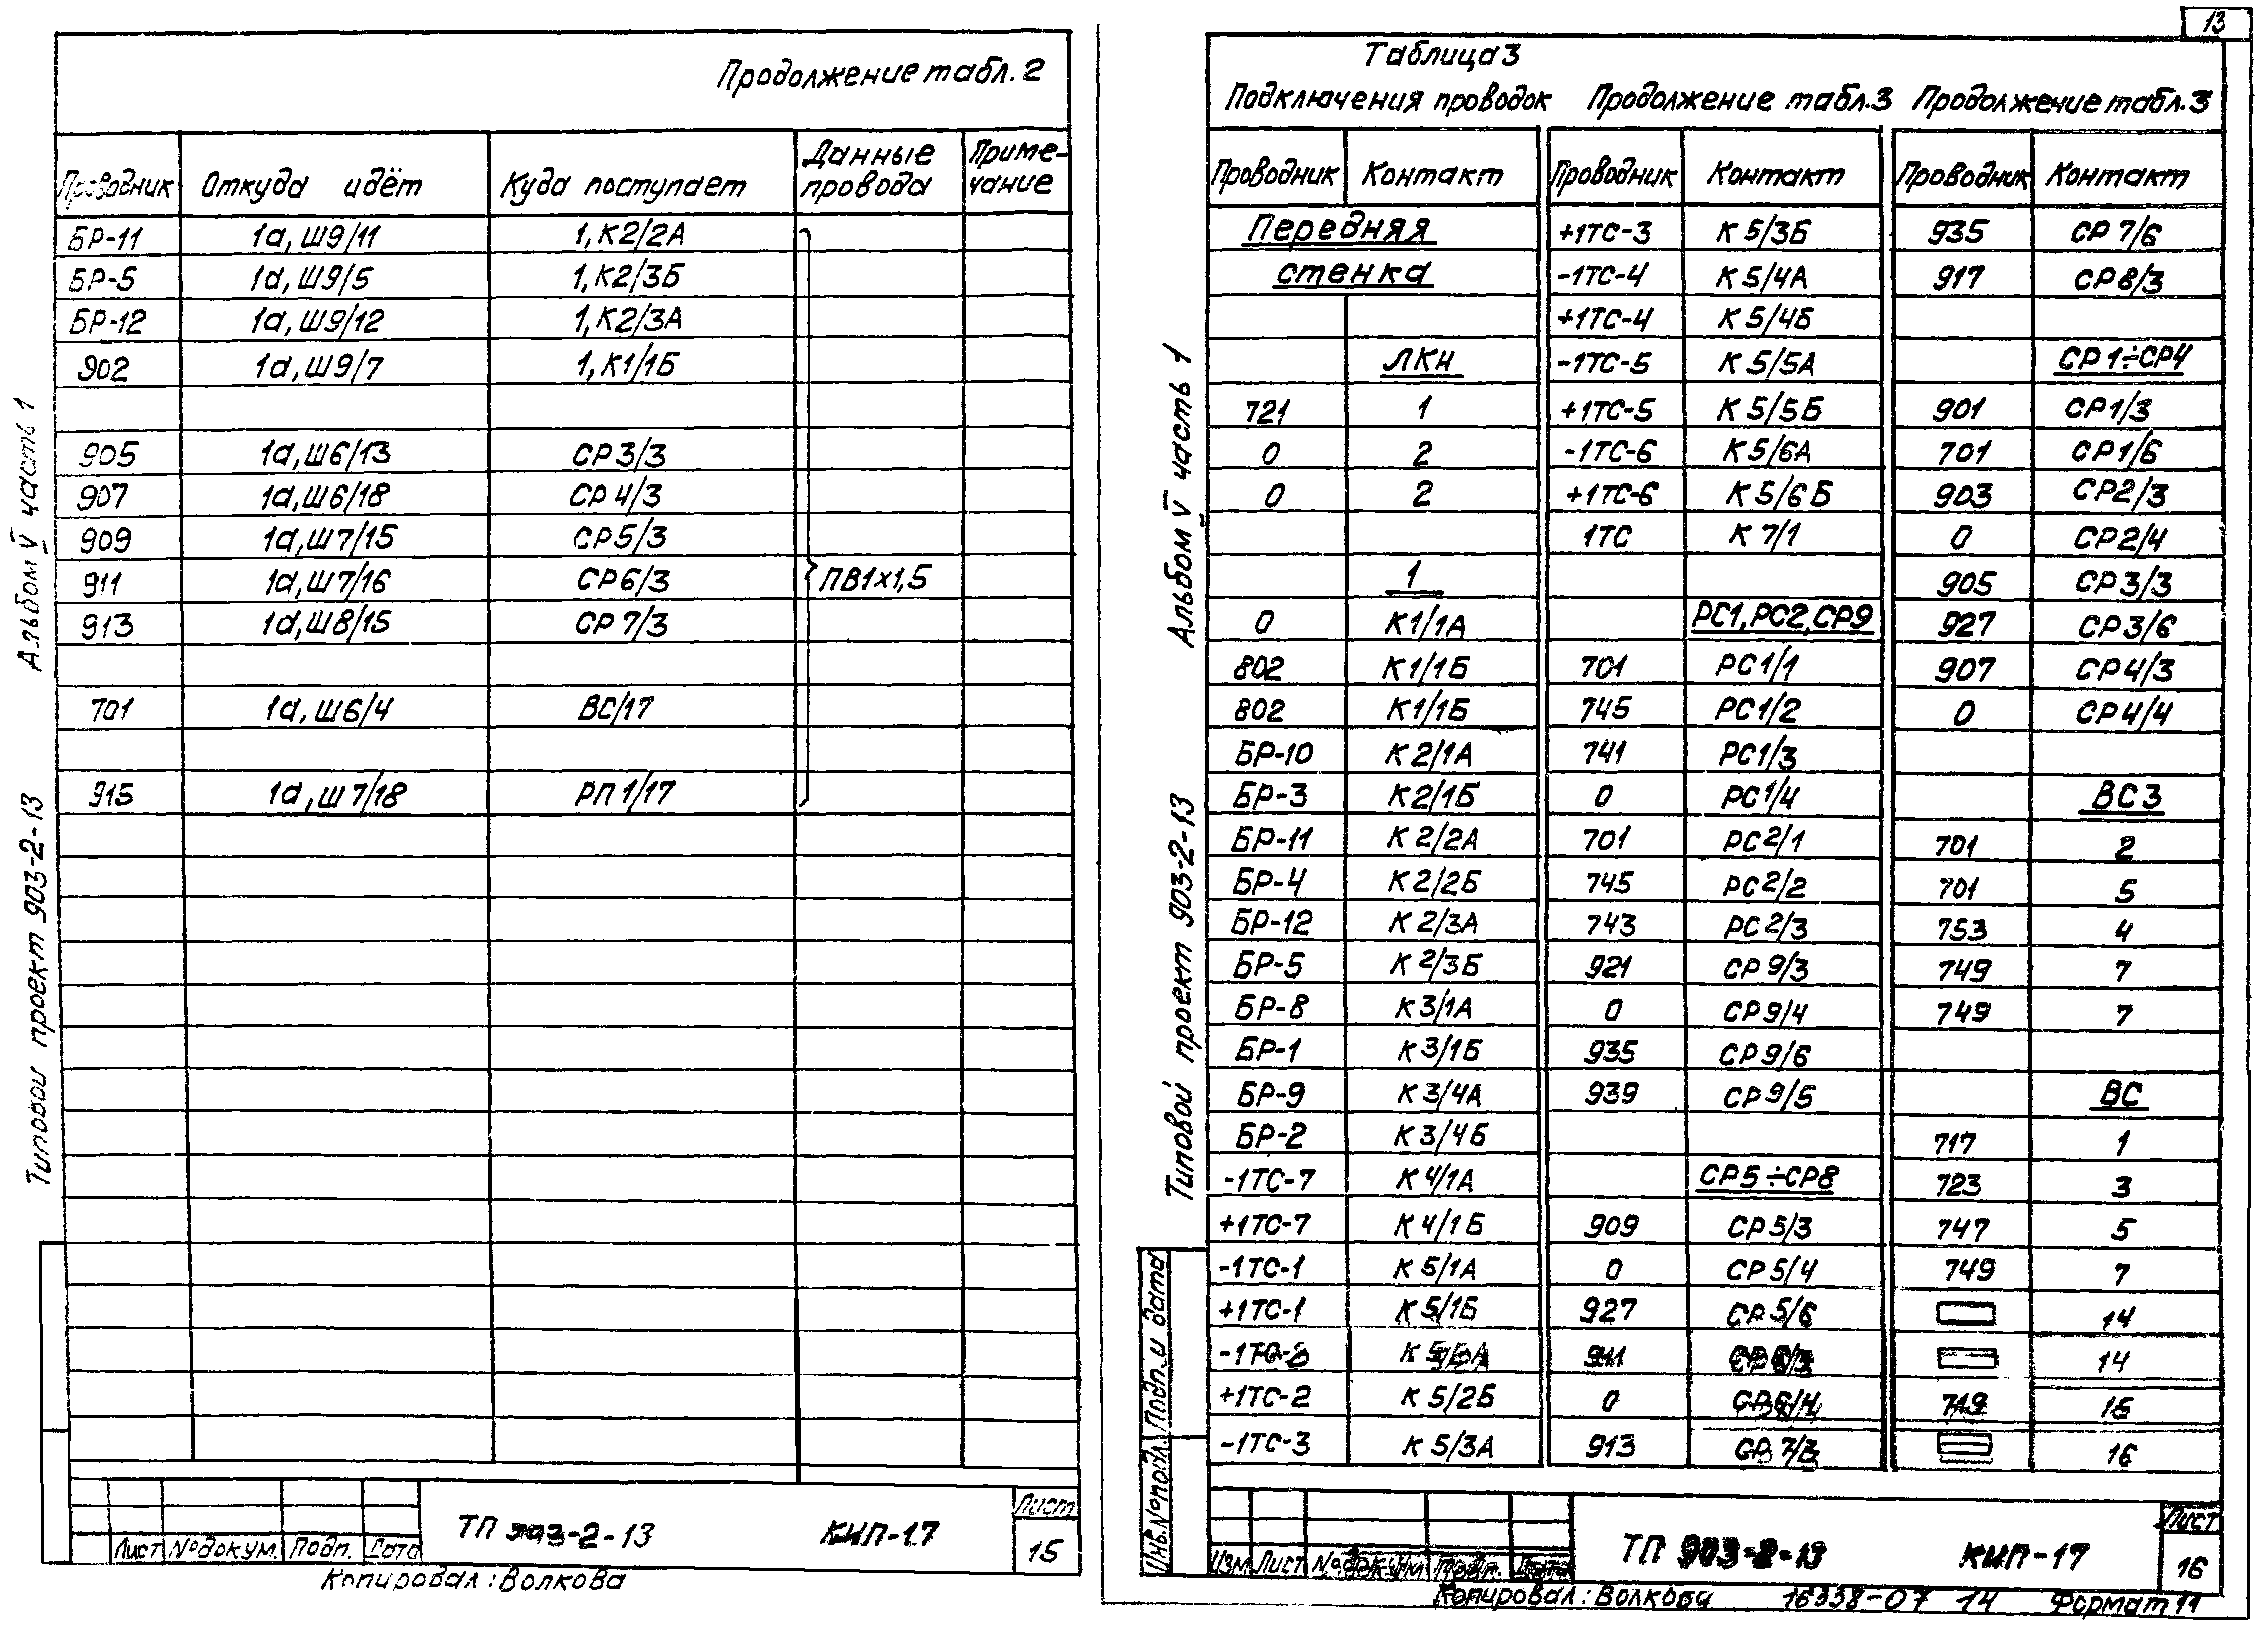 Продолжение табл. 2
Проводник Откуда идёт Куда поступает Данные провода Приме-чание
БР-11 1а, Ш9/11 1, К2/2А
БР-5 1а, Ш9/5 1, К2/3Б
БР-12 1а, Ш9/12 1, К2/3А
902 1а, Ш9/7 1, К1/1Б
905 1а, Ш6/13 СР3/3
907 1а, Ш6/18 СР4/3
909 1а, Ш7/15 СР5/3
911 1а, Ш7/16 СР6/3 ПВ1х1,5
913 1а, Ш8/15 СР7/3
701 1а, Ш6/4 ВС/17
915 1а, Ш7/18 РП1/17
Альбом V часть 1
Типовой проект 903-2-13
Лист №докум. Подп. Дата
ТП 903-2-13 КИП-17
Лист
15
Копировал: Волкова
13
Таблица 3
Подключения проводок Продолжение табл.3 Продолжение табл.3
Проводник Контакт Проводник Контакт Проводник Контакт
Передняя +1ТС-3 К5/3Б 935 СР7/6
стенка -1ТС-4 К5/4А 917 СР8/3
+1ТС-4 К5/4Б
ЛКН -1ТС-5 К5/5А СР1÷СР4
721 1 +1ТС-5 К5/5Б 901 СР1/3
0 2 -1ТС-6 К5/6А 701 СР1/6
0 2 +1ТС-6 К5/6Б 903 СР2/3
1ТС К7/1 0 СР2/4
1 905 СР3/3
0 К1/1А РС1, РС2, СР9 927 СР3/6
802 К1/1Б 701 РС1/1 907 СР4/3
802 К1/1Б 745 РС1/2 0 СР4/4
БР-10 К2/1А 741 РС1/3
БР-3 К2/1Б 0 РС1/4 ВС3
БР-11 К2/2А 701 РС2/1 701 2
БР-4 К2/2Б 745 РС2/2 701 5
БР-12 К2/3А 743 РС2/3 753 4
БР-5 К2/3Б 921 СР9/3 749 7
БР-8 К3/1А 0 СР9/4 749 7
БР-1 К3/1Б 935 СР9/6
БР-9 К3/4А 939 СР9/5 ВС
БР-2 К3/4Б 717 1
-1ТС-7 К4/1А СР5÷СР8 723 3
+1ТС-7 К4/1Б 909 СР5/3 747 5
-1ТС-1 К5/1А 0 СР5/4 749 7
+1ТС-1 К5/1Б 927 СР5/6 14
911 СР6/3 14
+1ТС-2 К5/2Б 0 СР6/4 749
-1ТС-3 К5/3А 913 СР7/3 16
Альбом V часть 1
Типовой проект 903-2-13
Подп. и дата
Инв.№подл.
Изм. Лист №докум. Подп. Дата
ТП 903-2-13 КИП-17
Лист
16
Копировал: Волкова 16338-07 14 Формат 11